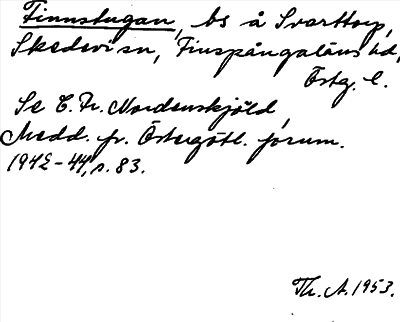 Finnstugan, bs å Svarttorp,
Skedevi sn, Finspångaläns hd,
Östg. l.
Se C. Fr. Nordenskjöld,
Medd. fr. Östergötl. fornm.
1942-44, s. 83.
Th. A. 1953.